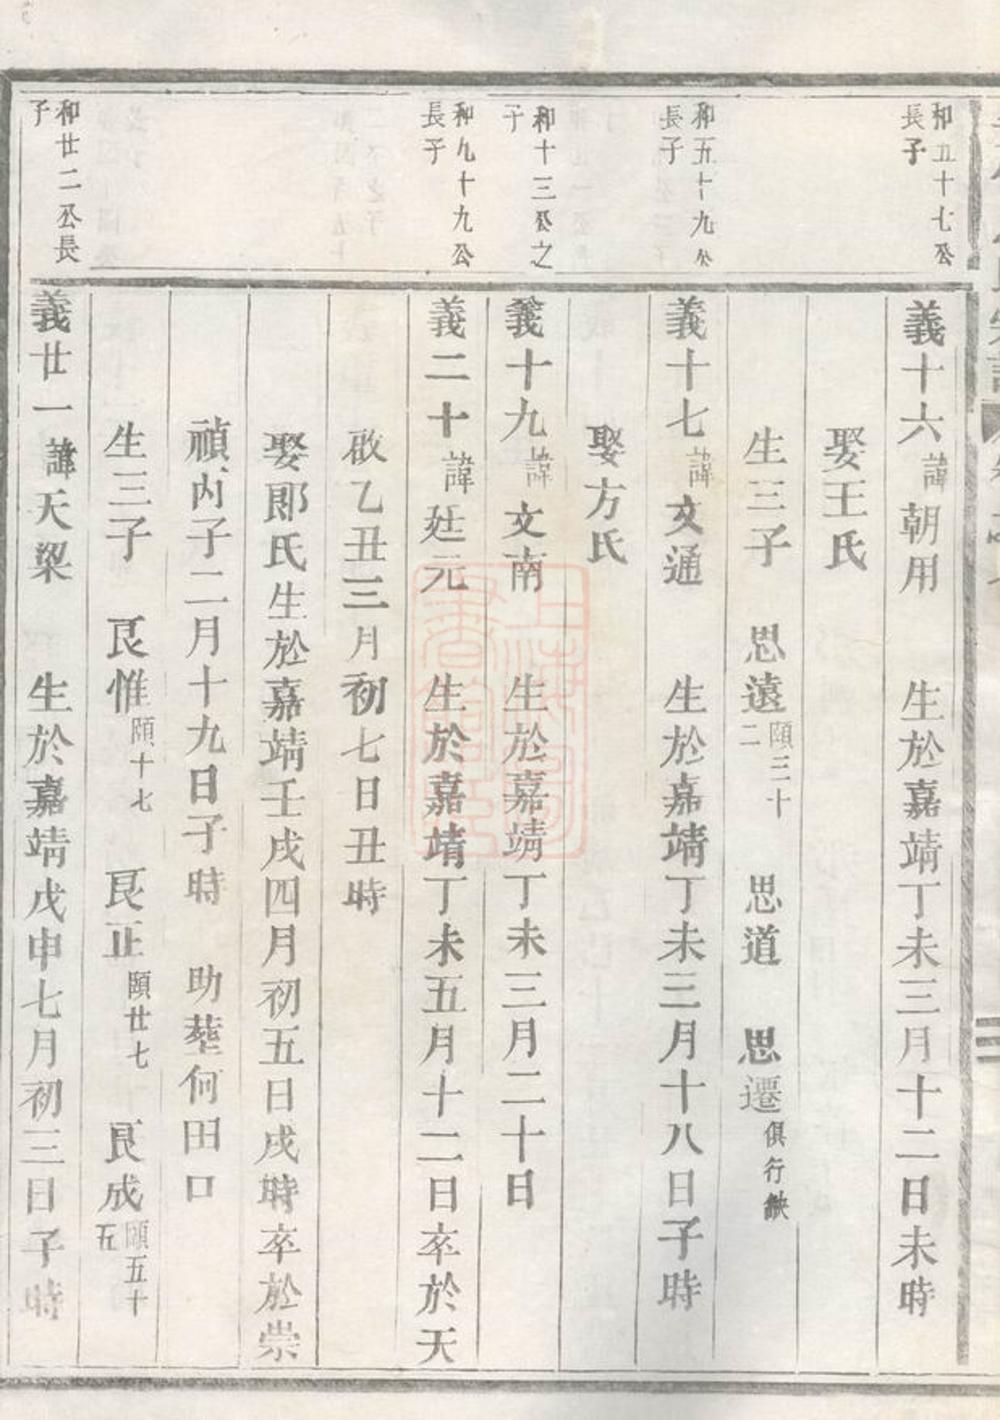 和五十七公
長子
義十六諱朝用　生於嘉靖丁未三月十二日未時
娶王氏
生三子　思遠頤三十二　思道　思遷俱行缺
和五十九公
長子
義十七諱文通　生於嘉靖丁未三月十八日子時
娶方氏
和十三公之
子
義十九諱文南　生於嘉靖丁未三月二十日
和九十九公
長子
義二十諱廷元　生於嘉靖丁未五月十二日卒於天
啟乙丑三月初七日丑時
娶郎氏生於嘉靖壬戌四月初五日戌時卒於崇
禎丙子二月十九日子時　助塟何田口
生三子　良惟頤十七　良正頤廿七　良成頤五十五
和廿二公長
子
義廿一諱天梁　生於嘉靖戊申七月初三日子時